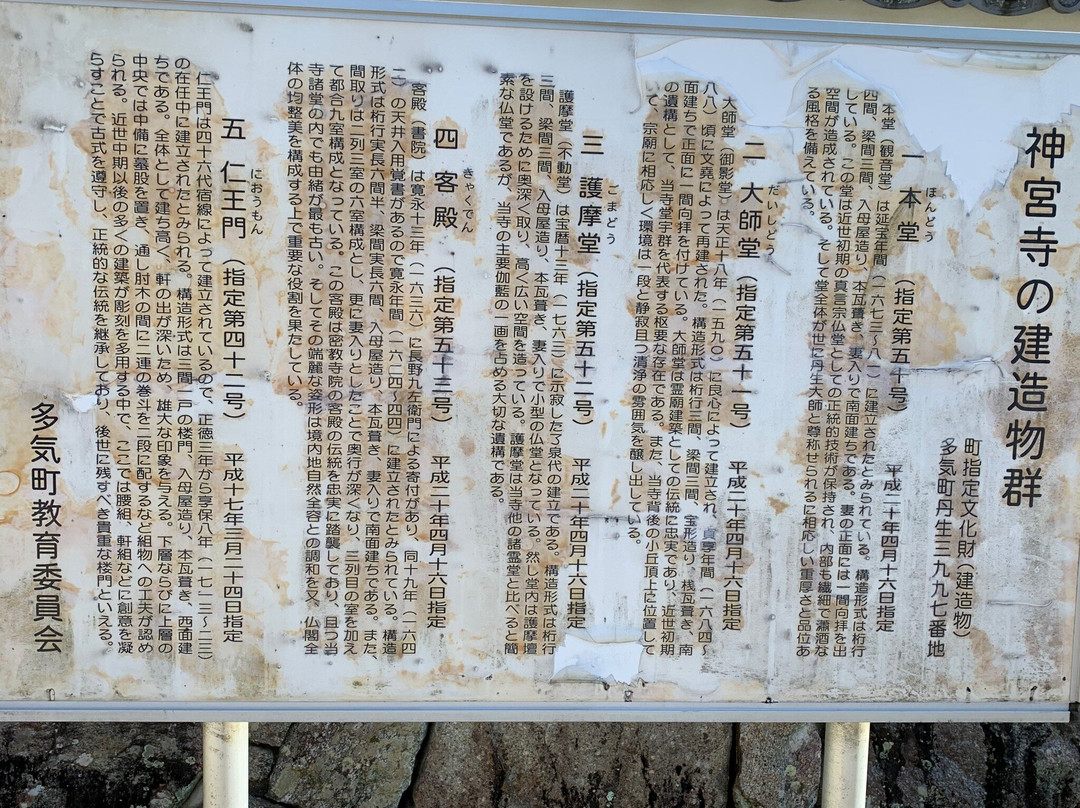 神宮寺の建造物群
町指定文化財（建造物）
多気町丹生三九九七番地
一 本堂（指定第五十号） 平成二十年四月十六日指定
ほんどう
本堂（観音堂）は延宝年間（一六七三～八一）に建立されたとみられている。構造形式は桁行
四間、梁間三間、入母屋造り、本瓦葺き、妻入りで南面建ちである。妻の正面には一間向拝を出
している。この堂は近世初期の真言宗仏堂としての正統的技術が保持され、内部も繊細で瀟洒な
空間が造成されている。そして堂全体が世に丹生大師と尊称せられるに相応しい重厚さと品位あ
る風格を備えている。
二 大師堂（指定第五十一号） 平成二十年四月十六日指定
だいしどう
大師堂（御影堂）は天正十八年（一五九〇）に良心によって建立され、貞享年間（一六八四～
八八）頃に文堯によって再建された。構造形式は桁行三間、梁間三間、宝形造り、桟瓦葺き、南
面建ちで正面に一間向拝を付けている。大師堂は霊廟建築としての伝統に忠実であり、近世初期
の遺構として、当寺堂宇群を代表する枢要な存在である。また、当寺背後の小丘頂上に位置して
いて、宗廟に相応しく環境は一段と静寂且つ清浄の雰囲気を醸し出している。
三 護摩堂（指定第五十二号） 平成二十年四月十六日指定
ごまどう
護摩堂（不動堂）は宝暦十三年（一七六三）に示寂した了泉代の建立である。構造形式は桁行
三間、梁間三間、入母屋造り、本瓦葺き、妻入りで小型の仏堂となっている。然し堂内は護摩壇
を設けるために奥深く取り、高く広い空間を造っている。護摩堂は当寺他の諸霊堂と比べると簡
素な仏堂であるが、当寺の主要伽藍の一画を占める大切な遺構である。
四 客殿（指定第五十三号） 平成二十年四月十六日指定
きゃくでん
客殿（書院）は寛永十三年（一六三六）に長野九左衛門による寄付があり、同十九年（一六四
二）の天井入用覚書があるので寛永年間（一六二四～四四）に建立されたとみられている。構造
形式は桁行実長六間半、梁間実長六間、入母屋造り、本瓦葺き、妻入りで南面建ちである。また、
間取りは二列三室の六室構成とし、更に妻入りとしたことで奥行が深くなり、三列目の室を加え
て都合九室構成となっている。この客殿は密教寺院の客殿の伝統を忠実に踏襲しており、且つ当
寺諸堂の内でも由緒が最も古い。そしてその端麗な姿形は境内地自然全容との調和を又、仏閣全
体の均整美を構成する上で重要な役割を果たしている。
五 仁王門（指定第四十二号） 平成十七年三月二十四日指定
におうもん
仁王門は四十六代宿線によって建立されているので、正徳三年から享保八年（一七一三～二三）
の在任中に建立されたとみられる。構造形式は三間一戸の楼門、入母屋造り、本瓦葺き、西面建
ちである。全体として建ち高く、軒の出が深いため、雄大な印象を与える。下層ならびに上層の
中央では中備に蟇股を置き、通し肘木の間に二連の巻斗を二段に配するなど組物への工夫が認め
られる。近世中期以後の多くの建築が彫刻を多用する中で、ここでは腰組、軒組などに創意を凝
らすことで古式を遵守し、正統的な伝統を継承しており、後世に残すべき貴重な楼門といえる。
多気町教育委員会